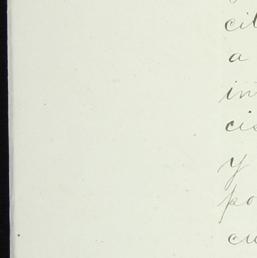 cit
a
in
cis
y
po
cu